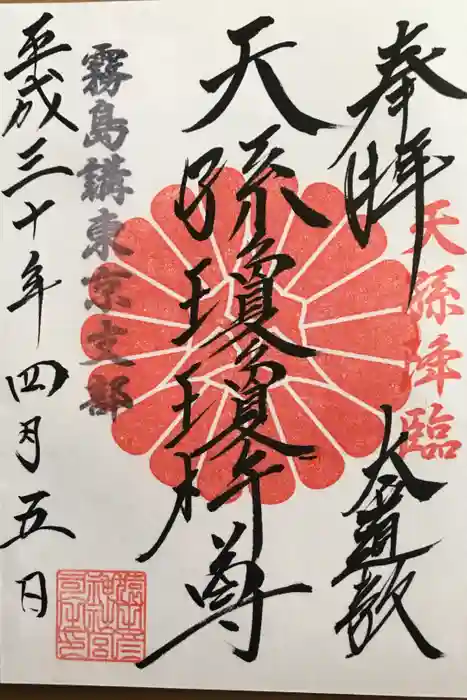 奉拝
天孫降臨
大道教
天孫瓊瓊杵尊
霧島講東京支部
平成三十年四月五日